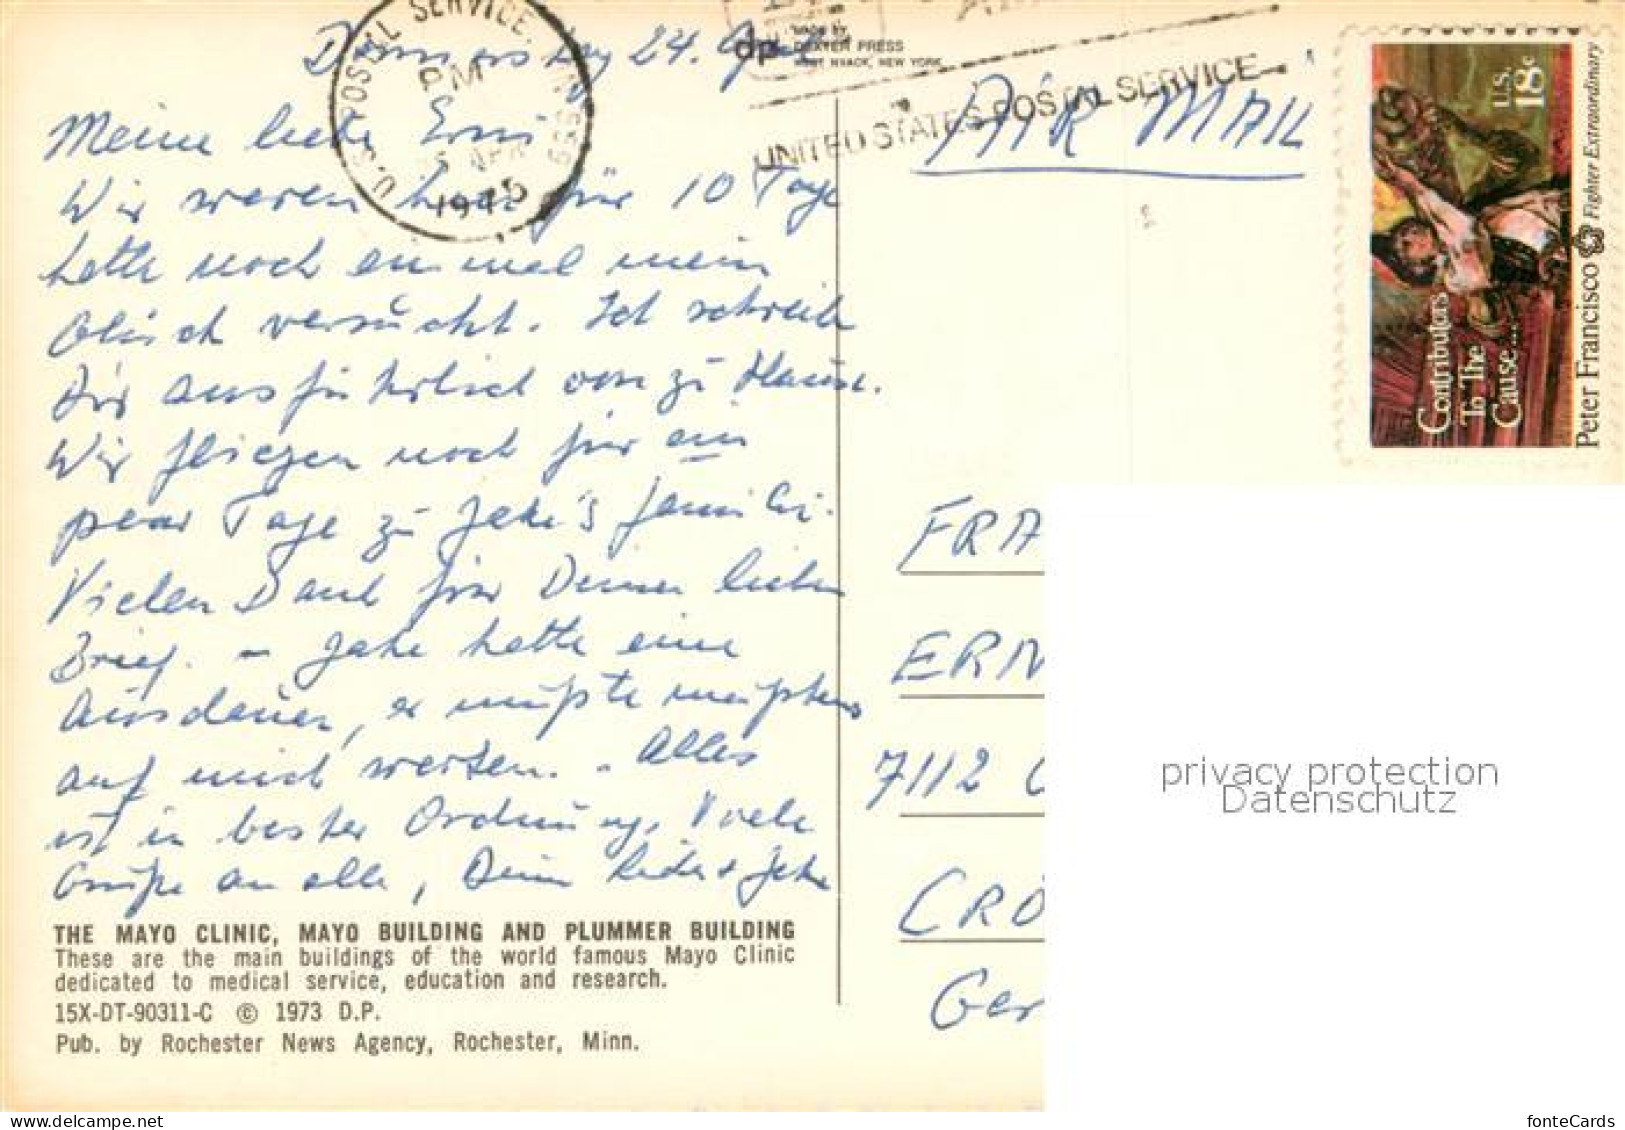 Donnerstag 24. Apr.
Meine liebe Erni
Wir waren hier für 10 Tage
hatte noch ein mal mein
Glück versucht. Ich schreibe
Dir ausführlich von zu Hause.
Wir fliegen noch für ein
paar Tage zu Jake's Familie.
Vielen Dank für Deinen lieben
Brief. – Jake hatte eine
Ausdauer, er mußte meistens
auf mich warten. – Alles
ist in bester Ordnung, Viele
Grüße an alle, Deine & Jake
THE MAYO CLINIC, MAYO BUILDING AND PLUMMER BUILDING
These are the main buildings of the world famous Mayo Clinic
dedicated to medical service, education and research.
15X-DT-90311-C © 1973 D.P.
Pub. by Rochester News Agency, Rochester, Minn.
U.S. POSTAL SERVICE, MN 559
PM
APR
1975
dp
MADE BY
DEXTER PRESS
WEST NYACK, NEW YORK
UNITED STATES POSTAL SERVICE
AIR MAIL
U.S. 18c
Contributors
To The
Cause...
Peter Francisco Fighter Extraordinary
FRA
ERN
7112
CRÖ
Ger
privacy protection
Datenschutz
fonteCards